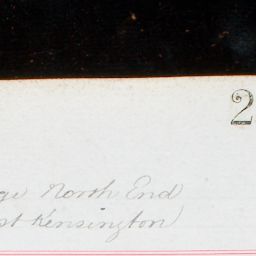 2
ge North End
st Kensington)